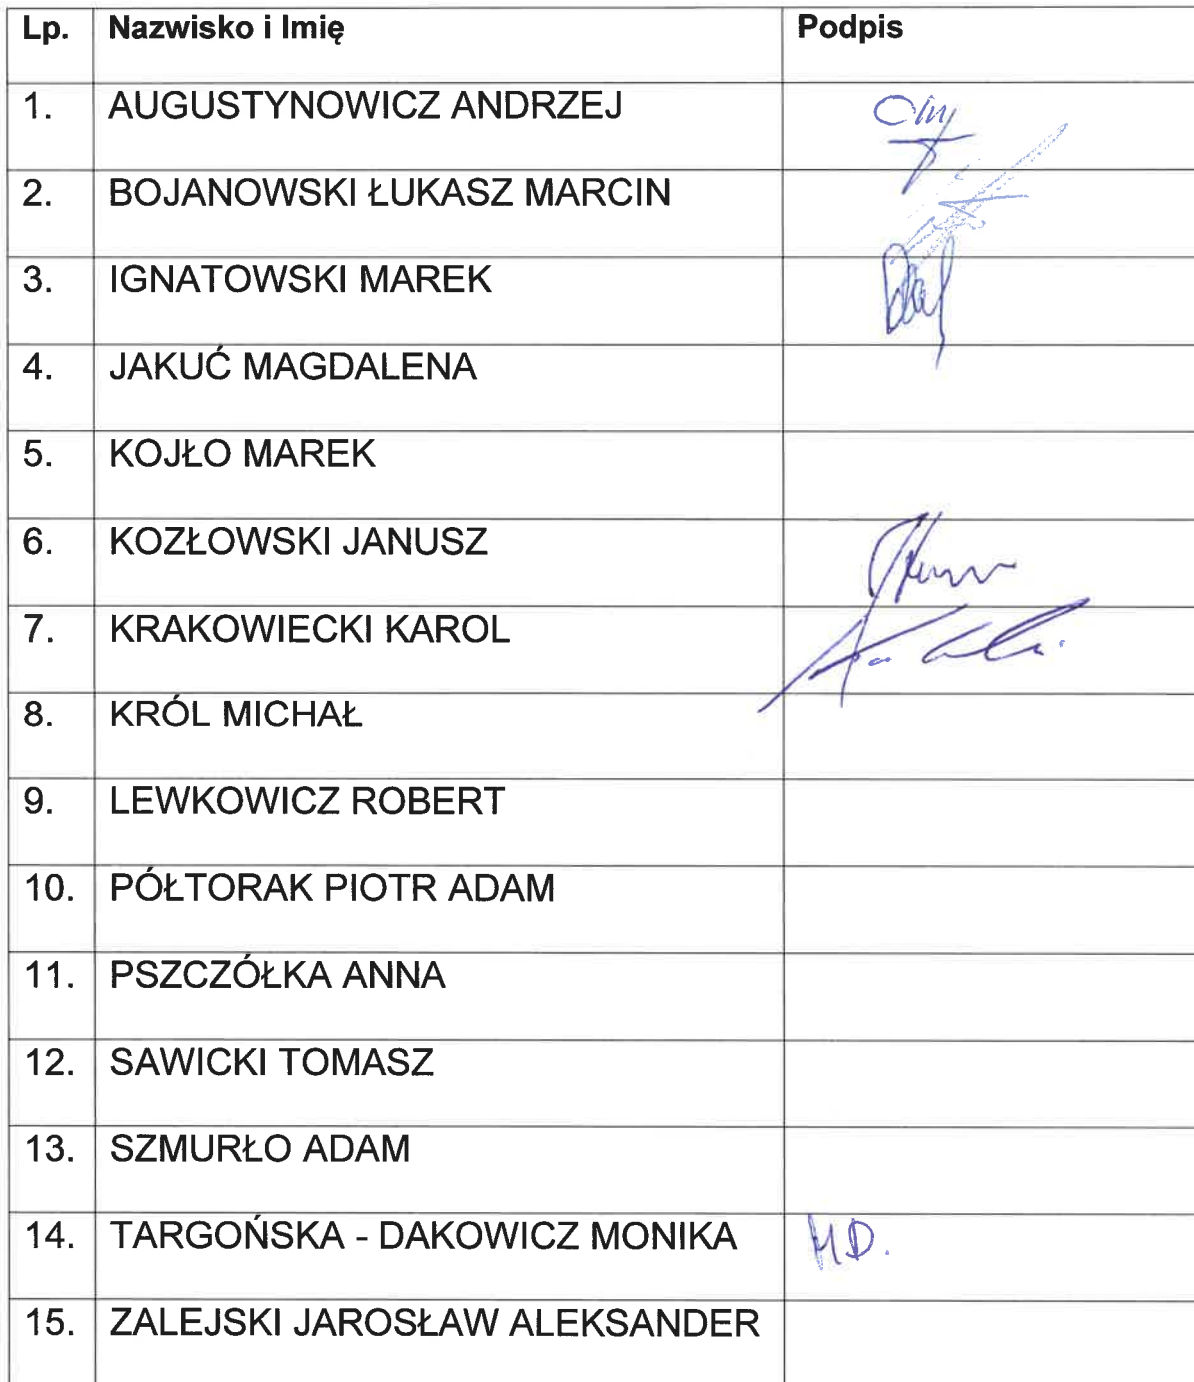 Lp. Nazwisko i Imię Podpis
1. AUGUSTYNOWICZ ANDRZEJ
2. BOJANOWSKI ŁUKASZ MARCIN
3. IGNATOWSKI MAREK
4. JAKUĆ MAGDALENA
5. KOJŁO MAREK
6. KOZŁOWSKI JANUSZ
7. KRAKOWIECKI KAROL
8. KRÓL MICHAŁ
9. LEWKOWICZ ROBERT
10. PÓŁTORAK PIOTR ADAM
11. PSZCZÓŁKA ANNA
12. SAWICKI TOMASZ
13. SZMURŁO ADAM
14. TARGOŃSKA - DAKOWICZ MONIKA MD.
15. ZALEJSKI JAROSŁAW ALEKSANDER